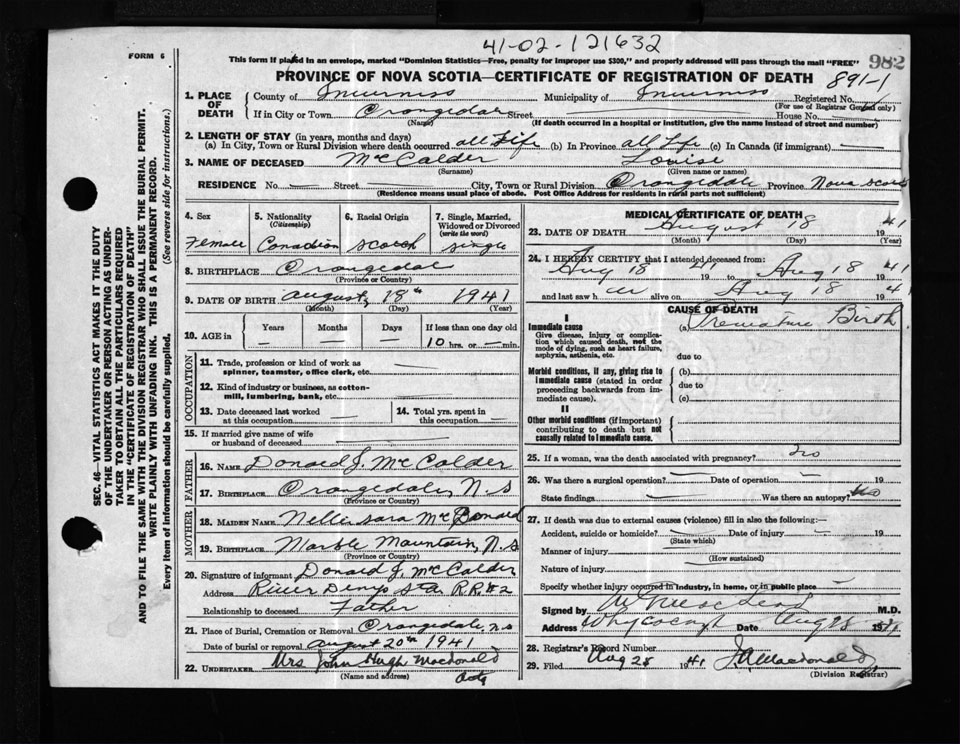 41-02-121632
FORM 6
This form if placed in an envelope, marked "Dominion Statistics—Free, penalty for improper use $300," and properly addressed will pass through the mail "FREE"
982
PROVINCE OF NOVA SCOTIA—CERTIFICATE OF REGISTRATION OF DEATH
891-1
1. PLACE OF DEATH
County of Inverness Municipality of Inverness Registered No.
(For use of Registrar General only)
If in City or Town Orangedale Street House No.
(Name) (If death occurred in a hospital or institution, give the name instead of street and number)
2. LENGTH OF STAY (in years, months and days)
(a) In City, Town or Rural Division where death occurred all Life (b) In Province all Life (c) In Canada (if immigrant) —
3. NAME OF DECEASED McCalder Louise
(Surname) (Given name or names)
RESIDENCE No. — Street — City, Town or Rural Division Orangedale Province Nova Scotia
(Residence means usual place of abode. Post Office Address for residents in rural parts not sufficient)
SEC. 46—VITAL STATISTICS ACT MAKES IT THE DUTY
OF THE UNDERTAKER OR PERSON ACTING AS UNDER-
TAKER TO OBTAIN ALL THE PARTICULARS REQUIRED
IN THE "CERTIFICATE OF REGISTRATION OF DEATH"
AND TO FILE THE SAME WITH THE DIVISION REGISTRAR WHO SHALL ISSUE THE BURIAL PERMIT.
WRITE PLAINLY WITH UNFADING INK. THIS IS A PERMANENT RECORD.
Every item of information should be carefully supplied. (See reverse side for instructions.)
4. Sex
Female
5. Nationality
(Citizenship)
Canadian
6. Racial Origin
Scotch
7. Single, Married,
Widowed or Divorced
(write the word)
Single
8. BIRTHPLACE Orangedale
(Province or Country)
9. DATE OF BIRTH August 18th 1941
(Month) (Day) (Year)
10. AGE in
Years Months Days If less than one day old
— — — 10 hrs. or — min.
OCCUPATION
11. Trade, profession or kind of work as
spinner, teamster, office clerk, etc.
12. Kind of industry or business, as cotton-
mill, lumbering, bank, etc.
13. Date deceased last worked
at this occupation
14. Total yrs. spent in
this occupation
15. If married give name of wife
or husband of deceased
FATHER
16. NAME Donald J. McCalder
17. BIRTHPLACE Orangedale, N.S
(Province or Country)
MOTHER
18. MAIDEN NAME Nellie Sara McDonald
19. BIRTHPLACE Marble Mountain, N.S
(Province or Country)
20. Signature of informant Donald J. McCalder
Address River Denys Sta R.R.#2
Relationship to deceased Father
21. Place of Burial, Cremation or Removal Orangedale, N.S
Date of burial or removal August 20th 1941
22. UNDERTAKER Mrs John Hugh Macdonald
(Name and address)
MEDICAL CERTIFICATE OF DEATH
23. DATE OF DEATH August 18 1941
(Month) (Day) (Year)
24. I HEREBY CERTIFY that I attended deceased from:
Aug 18 1941 to Aug 18 1941
and last saw her alive on Aug 18 1941
CAUSE OF DEATH
I
Immediate cause
Give disease, injury or complica-
tion which caused death, not the
mode of dying, such as heart failure,
asphyxia, asthenia, etc.
(a) Premature Birth
due to
Morbid conditions, if any, giving rise to
immediate cause (stated in order
proceeding backwards from im-
mediate cause).
(b)
due to
(c)
II
Other morbid conditions (if important)
contributing to death but not
causally related to immediate cause.
25. If a woman, was the death associated with pregnancy? No
26. Was there a surgical operation? — Date of operation — 19
State findings — Was there an autopsy? No
27. If death was due to external causes (violence) fill in also the following:—
Accident, suicide or homicide? — Date of injury — 19
(State which)
Manner of injury
(How sustained)
Nature of injury
Specify whether injury occurred in industry, in home, or in public place —
Signed by M.D.
Address Whycocomagh Date Aug 28 19
28. Registrar's Record Number
29. Filed Aug 28 1941 J. A. Macdonald
(Division Registrar)